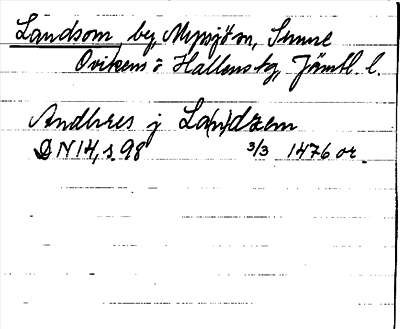 Landsom by, Myssjö sn, Sunne
Ovikens o Hallens tg, Jämtl. l.
Andhres j La(n)dzem
DN 14, s. 98 3/3 1476 or.